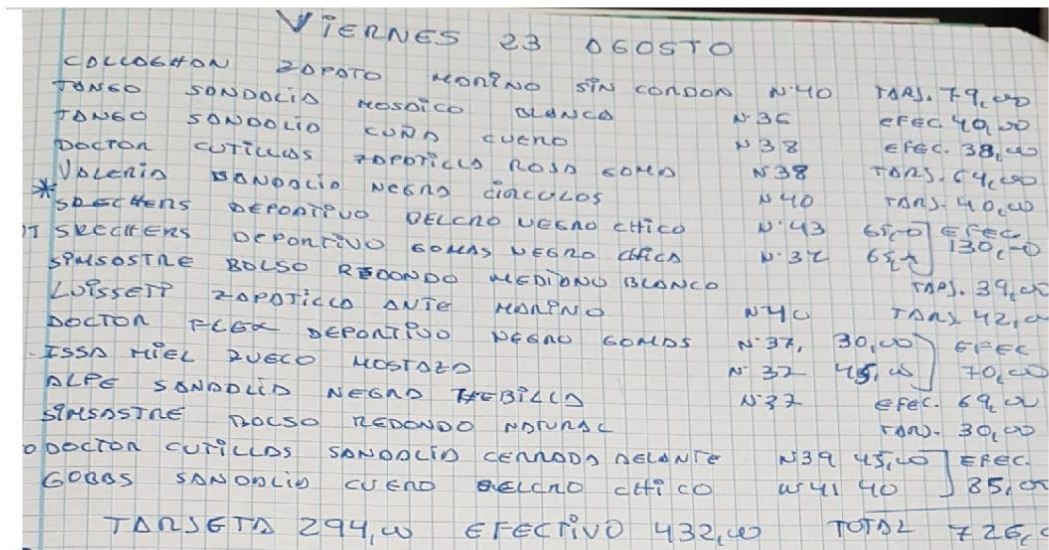 VIERNES 23 AGOSTO
CALLAGHAN ZAPATO MARINO SIN CORDON Nº40 TARJ. 79,00
TANGO SANDALIA MOSAICO BLANCA Nº36 EFEC. 40,00
TANGO SANDALIA CUÑA CUERO Nº38 EFEC. 38,00
DOCTOR CUTILLAS ZAPATILLA ROSA GOMA Nº38 TARJ. 64,00
VALERIA SANDALIA NEGRA CIRCULOS Nº40 TARJ. 40,00
* SKECHERS DEPORTIVO VELCRO NEGRO CHICO Nº43 65,00 EFEC.
SKECHERS DEPORTIVO GOMAS NEGRO CHICA Nº37 65,00 130,00
SIMSASTRE BOLSO REDONDO MEDIANO BLANCO TARJ. 39,00
LUISSETI ZAPATILLA ANTE MARINO Nº40 TARJ. 42,00
DOCTOR FLEX DEPORTIVO NEGRO GOMAS Nº37, 30,00 EFEC
ISSA MIEL ZUECO MOSTAZA Nº37 45,00 70,00
ALPE SANDALIA NEGRA HEBILLA Nº37 EFEC. 69,00
SIMSASTRE BOLSO REDONDO NATURAL TARJ. 30,00
DOCTOR CUTILLAS SANDALIA CERRADA DELANTE Nº39 45,00 EFEC.
GOBAS SANDALIA CUERO VELCRO CHICO Nº41 40 85,00
TARJETA 294,00 EFECTIVO 432,00 TOTAL 726,